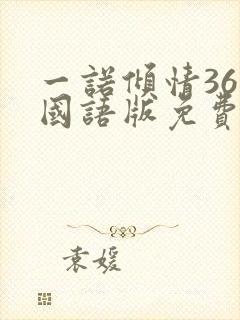 一諾傾情36
國語版免費
袁媛